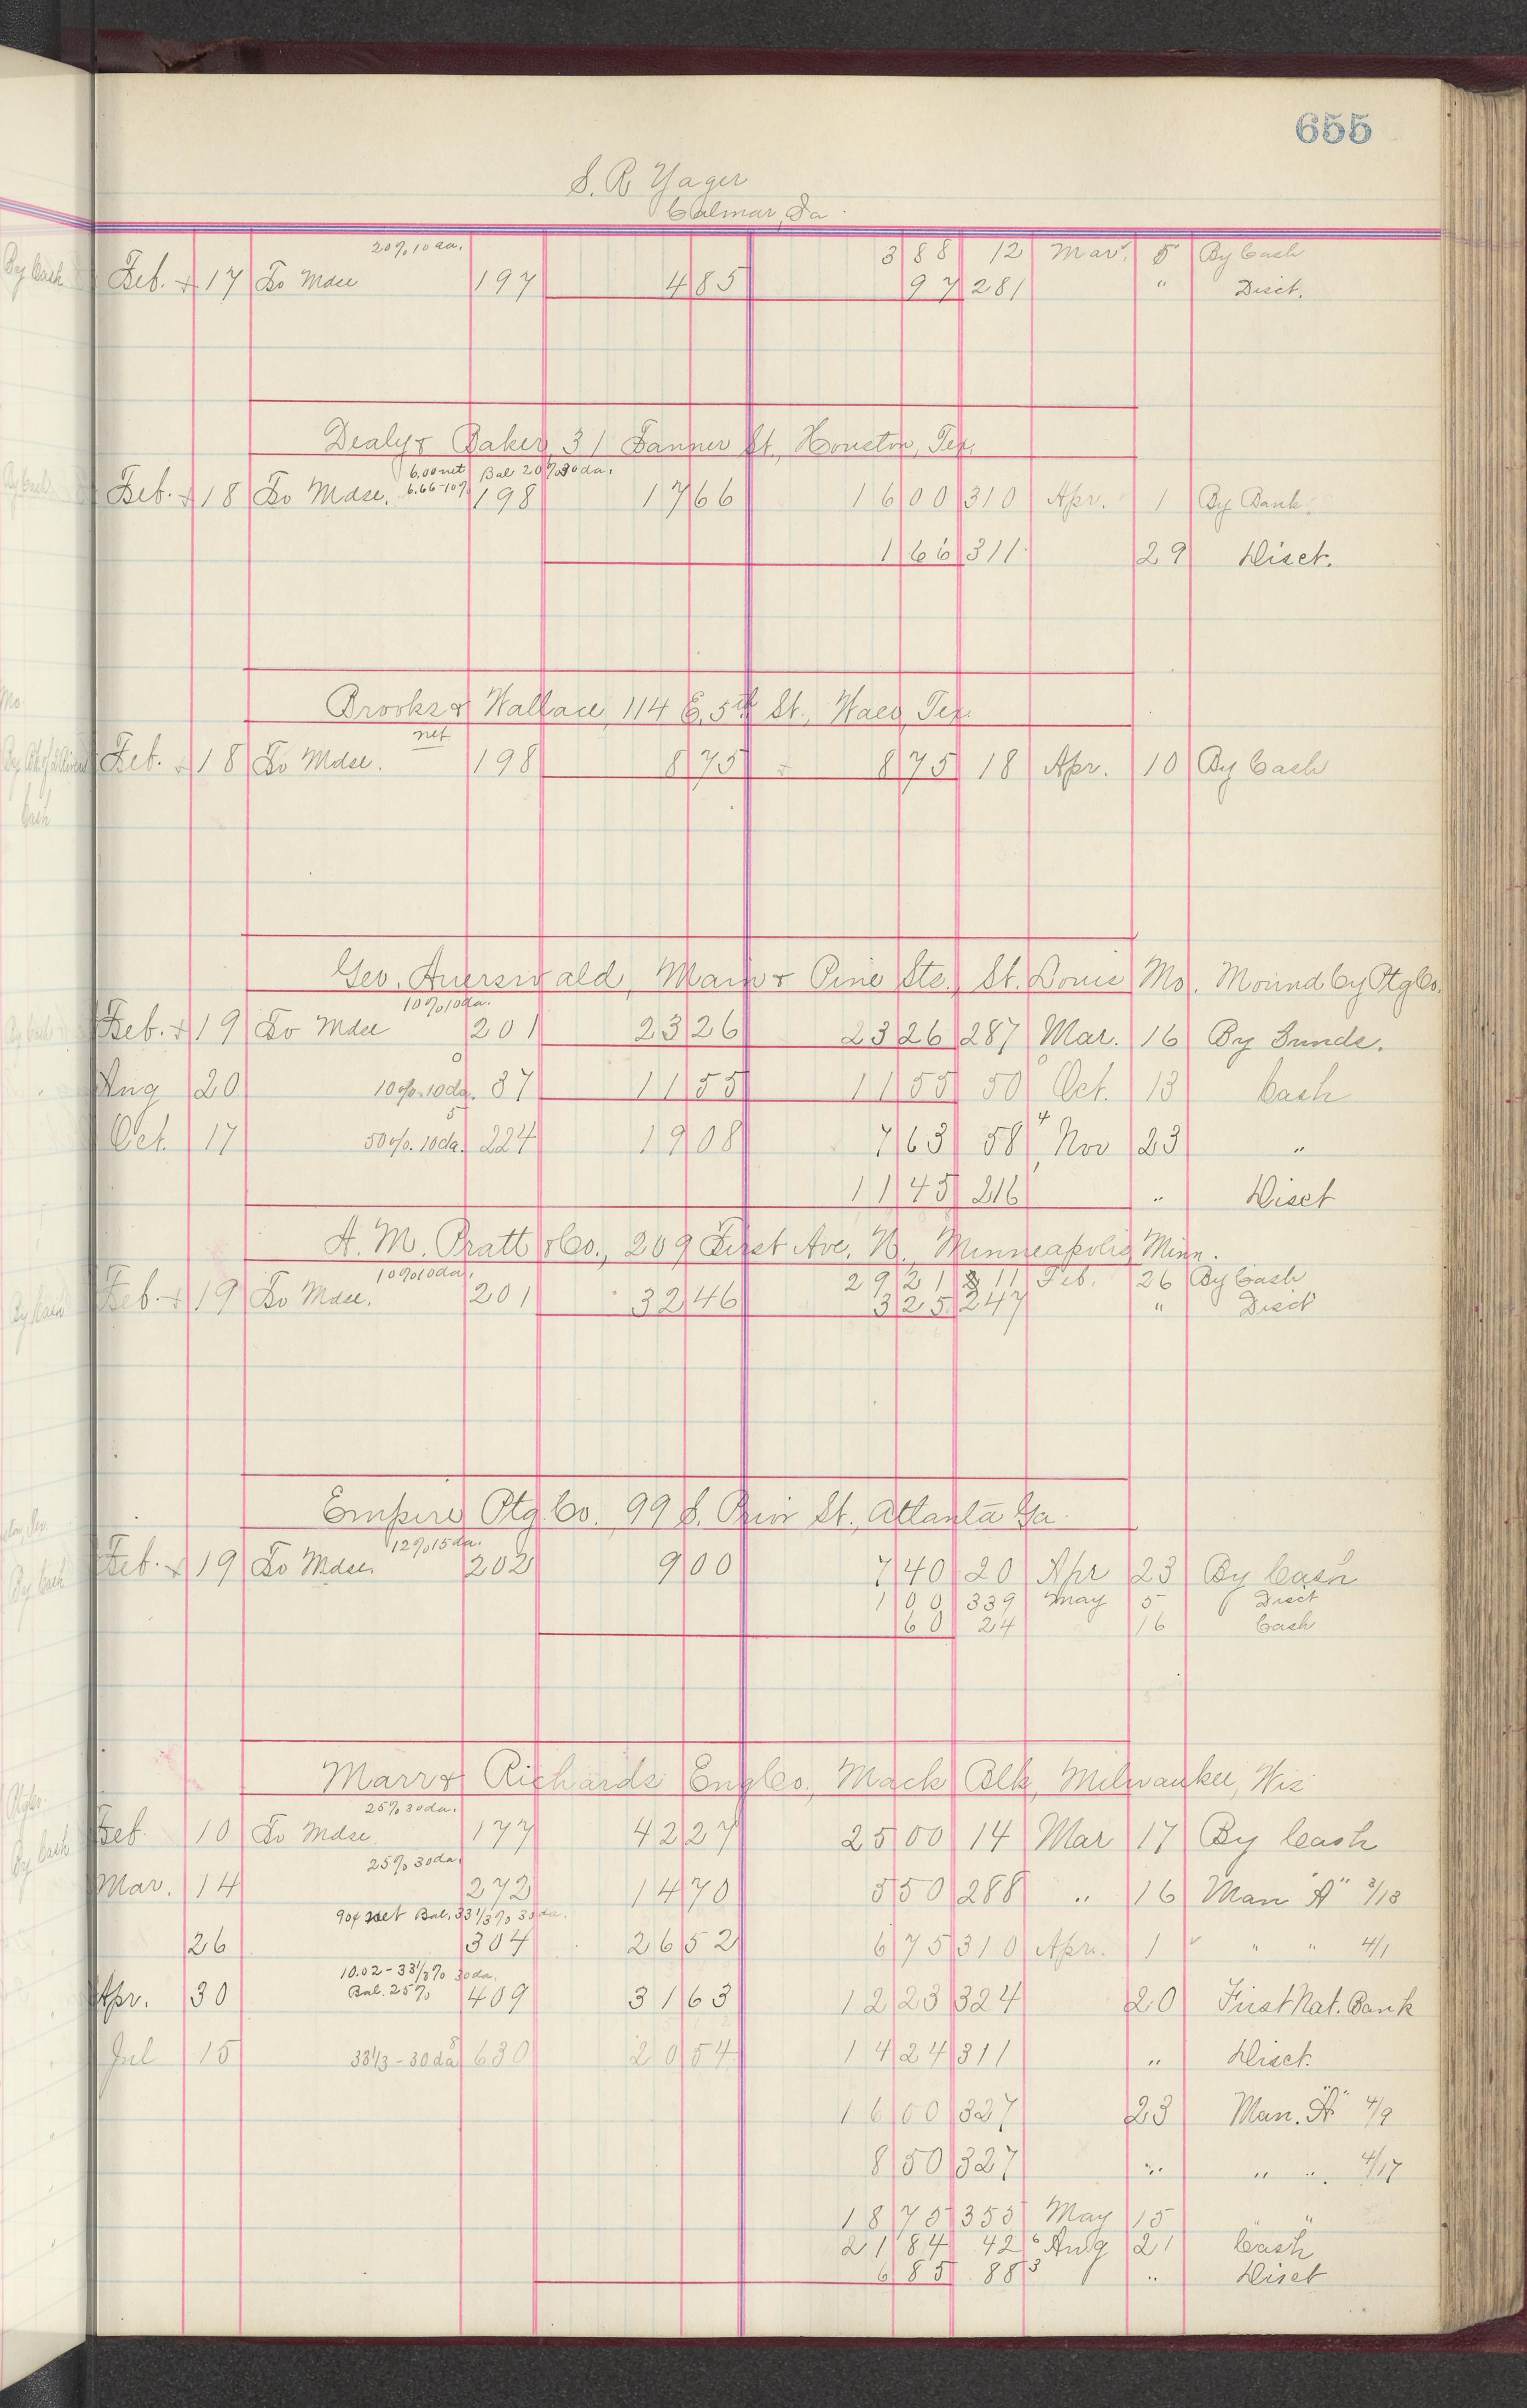 655
S. R. Yager
Calmar, Ia.
20% 10 da. 3 88 12 Mar. 5 By Cash
Feb. 17 To Mdse 197 4 85 97 281 " Disct.
Dealy & Baker, 31 Fanner St., Houston, Tex.
6.00 net Bal 20% 30 da.
Feb. 18 To Mdse. 6.66-10% 198 17 66 16 00 310 Apr. 1 By Bank.
1 66 311 29 Disct.
Brooks & Wallace, 114 E. 5th St., Waco, Tex.
net
Feb. 18 To Mdse. 198 8 75 8 75 18 Apr. 10 By Cash
Geo. Auerswald, Main & Pine Sts., St. Louis Mo. Mound Cy Ptg Co.
10% 10 da.
Feb. 19 To Mdse 201 23 26 23 26 287 Mar. 16 By Funds.
Aug 20 10%. 10 da. 87 11 55 11 55 50 Oct. 13 Cash
Oct. 17 50%. 10 da. 224 19 08 7 63 58 Nov 23 "
11 45 216 " Disct
A. M. Pratt & Co., 209 First Ave. N., Minneapolis, Minn.
10% 10 da. 29 21 11 Feb. 26 By Cash
Feb. 19 To Mdse. 201 32 46 3 25 247 " Disct
Empire Ptg. Co. 99 S. Prior St., Atlanta Ga.
12% 15 da.
Feb. 19 To Mdse. 202 9 00 7 40 20 Apr 23 By Cash
1 00 339 May 5 Disct
60 24 16 Cash
Marr & Richards Eng Co., Mack Blk, Milwaukee, Wis
25% 30 da.
Feb. 10 To Mdse. 177 42 27 25 00 14 Mar 17 By Cash
25% 30 da.
Mar. 14 272 14 70 5 50 288 " 16 Man "A" 3/13
90¢ net Bal. 33 1/3% 30 da.
26 304 26 52 6 75 310 Apr. 1 " " 4/1
10.02 - 33 1/3% 30 da.
Apr. 30 Bal. 25% 409 31 63 12 23 324 20 First Nat. Bank
Jul 15 33 1/3 - 30 da 630 20 54 14 24 311 " Disct.
16 00 327 23 Man. "A" 4/9
8 50 327 " " " 4/17
18 75 355 May 15 " "
21 84 42 6 Aug 21 Cash
6 85 88 3 " Disct